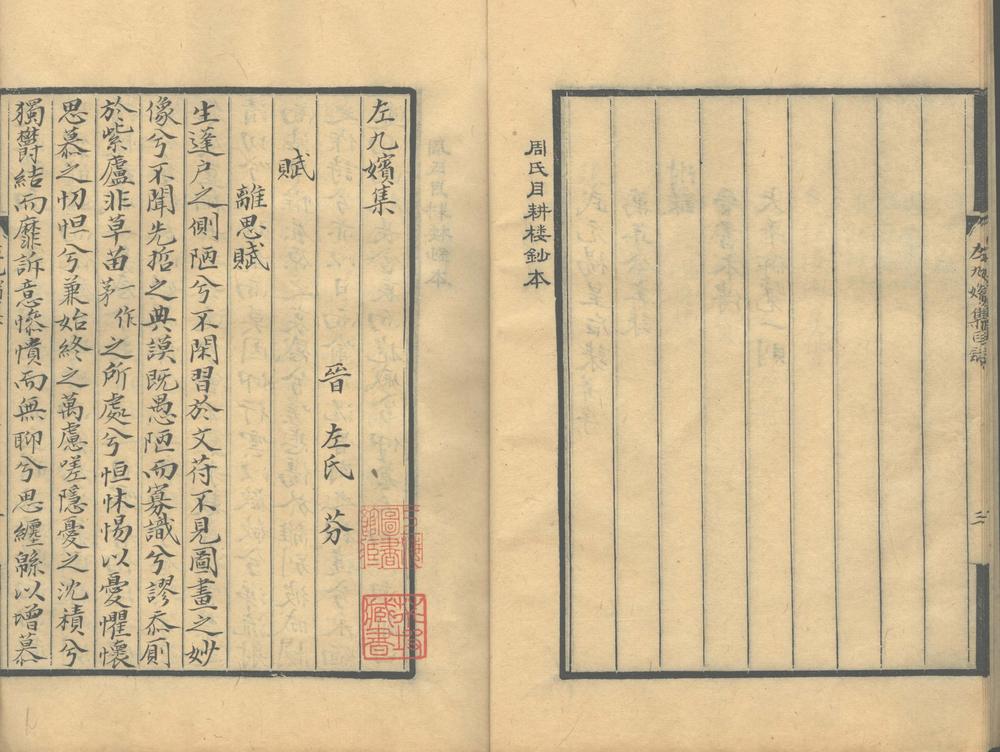 左九嬪集
二
周氏目耕楼鈔本
左九嬪集
晉 左氏 芬
賦
離思賦
生蓬户之側陋兮不閑習於文苻不見圖畫之妙
像兮不聞先哲之典謨既愚陋而寡識兮謬忝厠
於紫廬非草苗一作茅之所處兮恒怵惕以憂懼懷
思慕之忉怛兮兼始終之萬慮嗟隱憂之沈積兮
獨欝結而靡訴意慘憒而無聊兮思纏緜以增慕
圖書
藏書